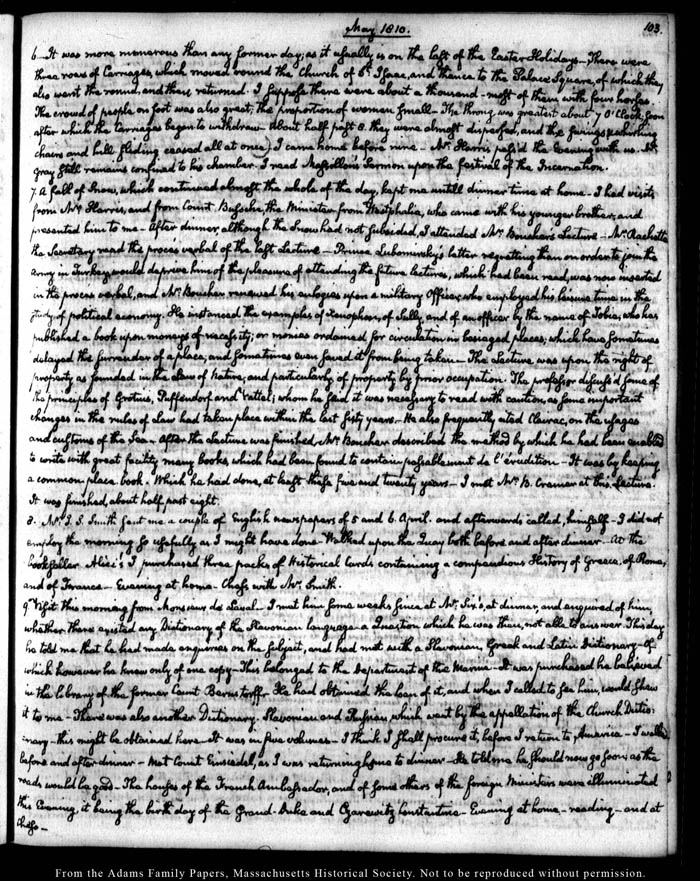 May 1810.
103.
6. It was more numerous than any former day; as it usually is on the last of the Easter Holidays—There were
three rows of Carriages, which moved round the Church of St. Isaac, and thence to the Palace Square, of which they
also went the round, and then returned. I suppose there were about a thousand—most of them with four horses.
The crowd of people on foot was also great; the proportion of women small—The throng was greatest about 7 O'Clock, soon
after which the Carriages began to withdraw—About half past 8. they were almost dispersed, and the swings, whirling
chairs and hill sliding ceased all at once) I came home before nine—Mr. Harris pass'd the Evening with us. Mr.
Gray still remains confined to his chamber. I read Massillon's Sermon upon the festival of the Incarnation.
7. A fall of Snow, which continued almost the whole of the day, kept me untill dinner time at home. I had visits
from Mr. Harris, and from Count Bussche, the Minister from Westphalia, who came with his younger brother, and
presented him to me—After dinner, although the Snow had not subsided, I attended Mr. Boucher's Lecture—Mr.
the Secretary read the procès verbal of the last Lecture—Prince Lubominsky's letter regretting than an order to join the
army in Turkey would deprive him of the pleasure of attending the future lectures, which had been read, was now inserted
in the procès verbal, and Mr. Boucher renewed his eulogies upon a military Officer, who employed his leisure time in the
study of political economy. He instanced the examples of Xenophon, of Sully, and of an officer by the name of Tobie, who has
published a book upon moneys of necessity; or monies ordained for circulation in besieged places, which have sometimes
delayed the surrender of a place, and sometimes even saved it from being taken—The Lecture was upon the right of
property as founded in the Law of Nature, and particularly of property by prior occupation. The professor discuss'd some of
the principles of Grotius, Puffendorf and Vattel; whom he said it was necessary to read with caution, as some important
changes in the rules of Law had taken place within the last fifty years—He also frequently cited Cleirac, on the usages
and customs of the Sea—After the lecture was finished, Mr. Boucher described the method by which he had been enabled
to write with great facility many books which had been found to contain passablement de l'érudition—It was by keeping
a common-place book. Which he had done, at least these five and twenty years—I met Mr. B. Cramer at this Lecture.
It was finished, about half past eight.
8. Mr. J. S. Smith sent me a couple of English newspapers of 5 and 6 April. and afterwards called, himself—I did not
employ the morning so usefully as I might have done—Walked upon the Quay both before and after dinner—At the
bookseller Alici's I purchased three packs of Historical Cards containing a compendious History of Greece, of Rome,
and of France—Evening at home—Chess with Mr. Smith.
9. Visit this morning from Monsieur de Laval—I met him some weeks since, at Mr. Six's, at dinner, and enquired of him,
whether there existed any Dictionary of the Slavonian language—a Question which he was then, not able to answer. This day
he told me that he had made enquiries on the subject, and had met with a Slavonian, Greek and Latin Dictionary—Of
which however he knew only of one copy—This belonged to the Department of the Marine—It was purchased he believed
in the library of the former Count Bernstorff. He had obtained the loan of it, and when I called to see him, would shew
it to me—There was also another Dictionary. Slavonian and Russian, which went by the appellation of the Church Dictio-
nary—this might be obtained here—It was in five volumes—I think I shall procure it, before I return to America—I walked
before and after dinner—Met Count Einsiedel, as I was returning home to dinner—He told me he should now go soon; as the
roads would be good—The houses of the French Ambassador, and of some others of the foreign Ministers were illuminated
this Evening, it being the birth day of the Grand-Duke and Czarewitz Constantine—Evening at home—reading—and at
chess—
From the Adams Family Papers, Massachusetts Historical Society. Not to be reproduced without permission.